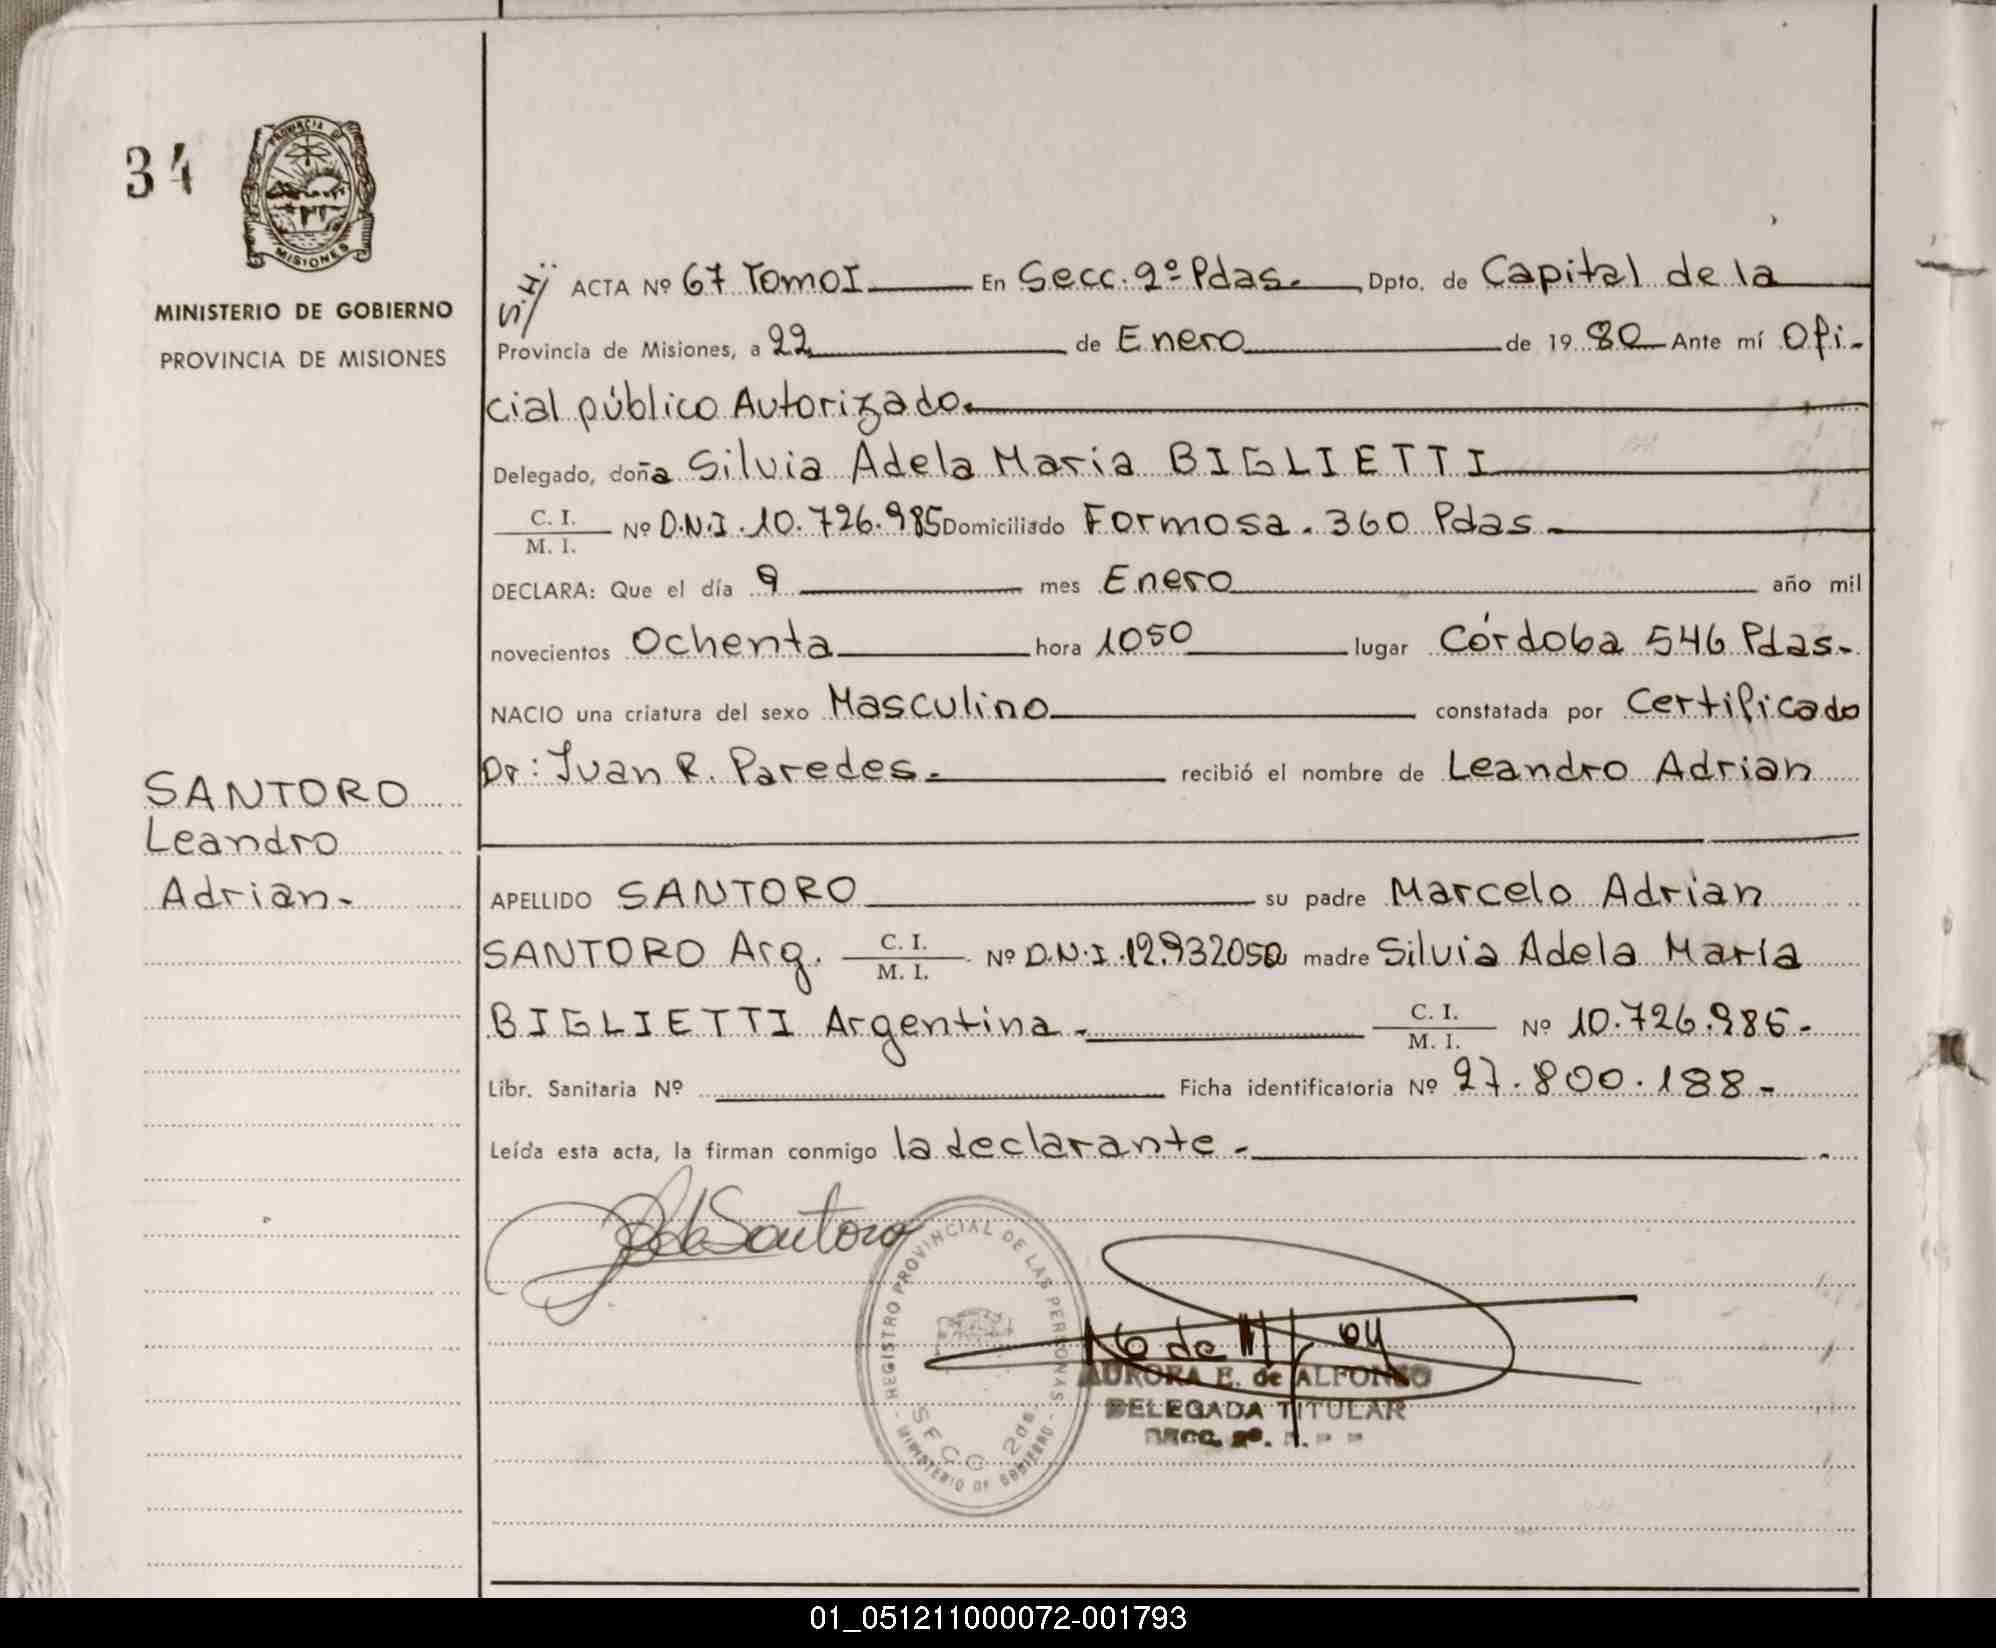 34
PROVINCIA DE
MISIONES
MINISTERIO DE GOBIERNO
PROVINCIA DE MISIONES
SANTORO
Leandro
Adrian.-
ACTA Nº 67 Tomo I En Secc. 2º Pdas. Dpto. de Capital de la
Provincia de Misiones, a 22 de Enero de 1980 Ante mí Ofi-
cial público Autorizado.
Delegado, doña Silvia Adela Maria BIGLIETTI
C. I.
M. I. Nº D.N.I. 10.726.985 Domiciliado Formosa. 360 Pdas.
DECLARA: Que el día 9 mes Enero año mil
novecientos Ochenta hora 1050 lugar Córdoba 546 Pdas.-
NACIO una criatura del sexo Masculino constatada por Certificado
Dr: Juan R. Paredes.- recibió el nombre de Leandro Adrian
APELLIDO SANTORO su padre Marcelo Adrian
SANTORO Arg. C. I. M. I. Nº D.N.I. 12.932050 madre Silvia Adela María
BIGLIETTI Argentina.- C. I. M. I. Nº 10.726.985.-
Libr. Sanitaria Nº Ficha identificatoria Nº 27.800.188-
Leída esta acta, la firman conmigo la declarante.-
de Santoro
REGISTRO PROVINCIAL DE LAS PERSONAS
SECC 2da.
MINISTERIO DE GOBIERNO
AURORA E. de ALFONSO
DELEGADA TITULAR
01_051211000072-001793